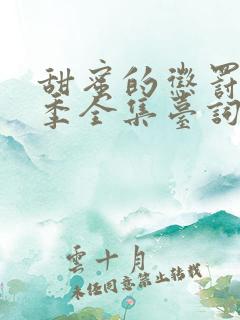 甜蜜的懲罰
季全集臺詞
雲十月
未经同意禁止转载